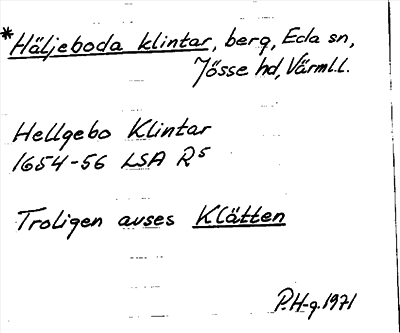 *Häljeboda klintar, berg, Eda sn,
Jösse hd, Värml.l.
Hellgebo Klintar
1654-56 LSA R5
Troligen avses Klätten
P.H-g. 1971